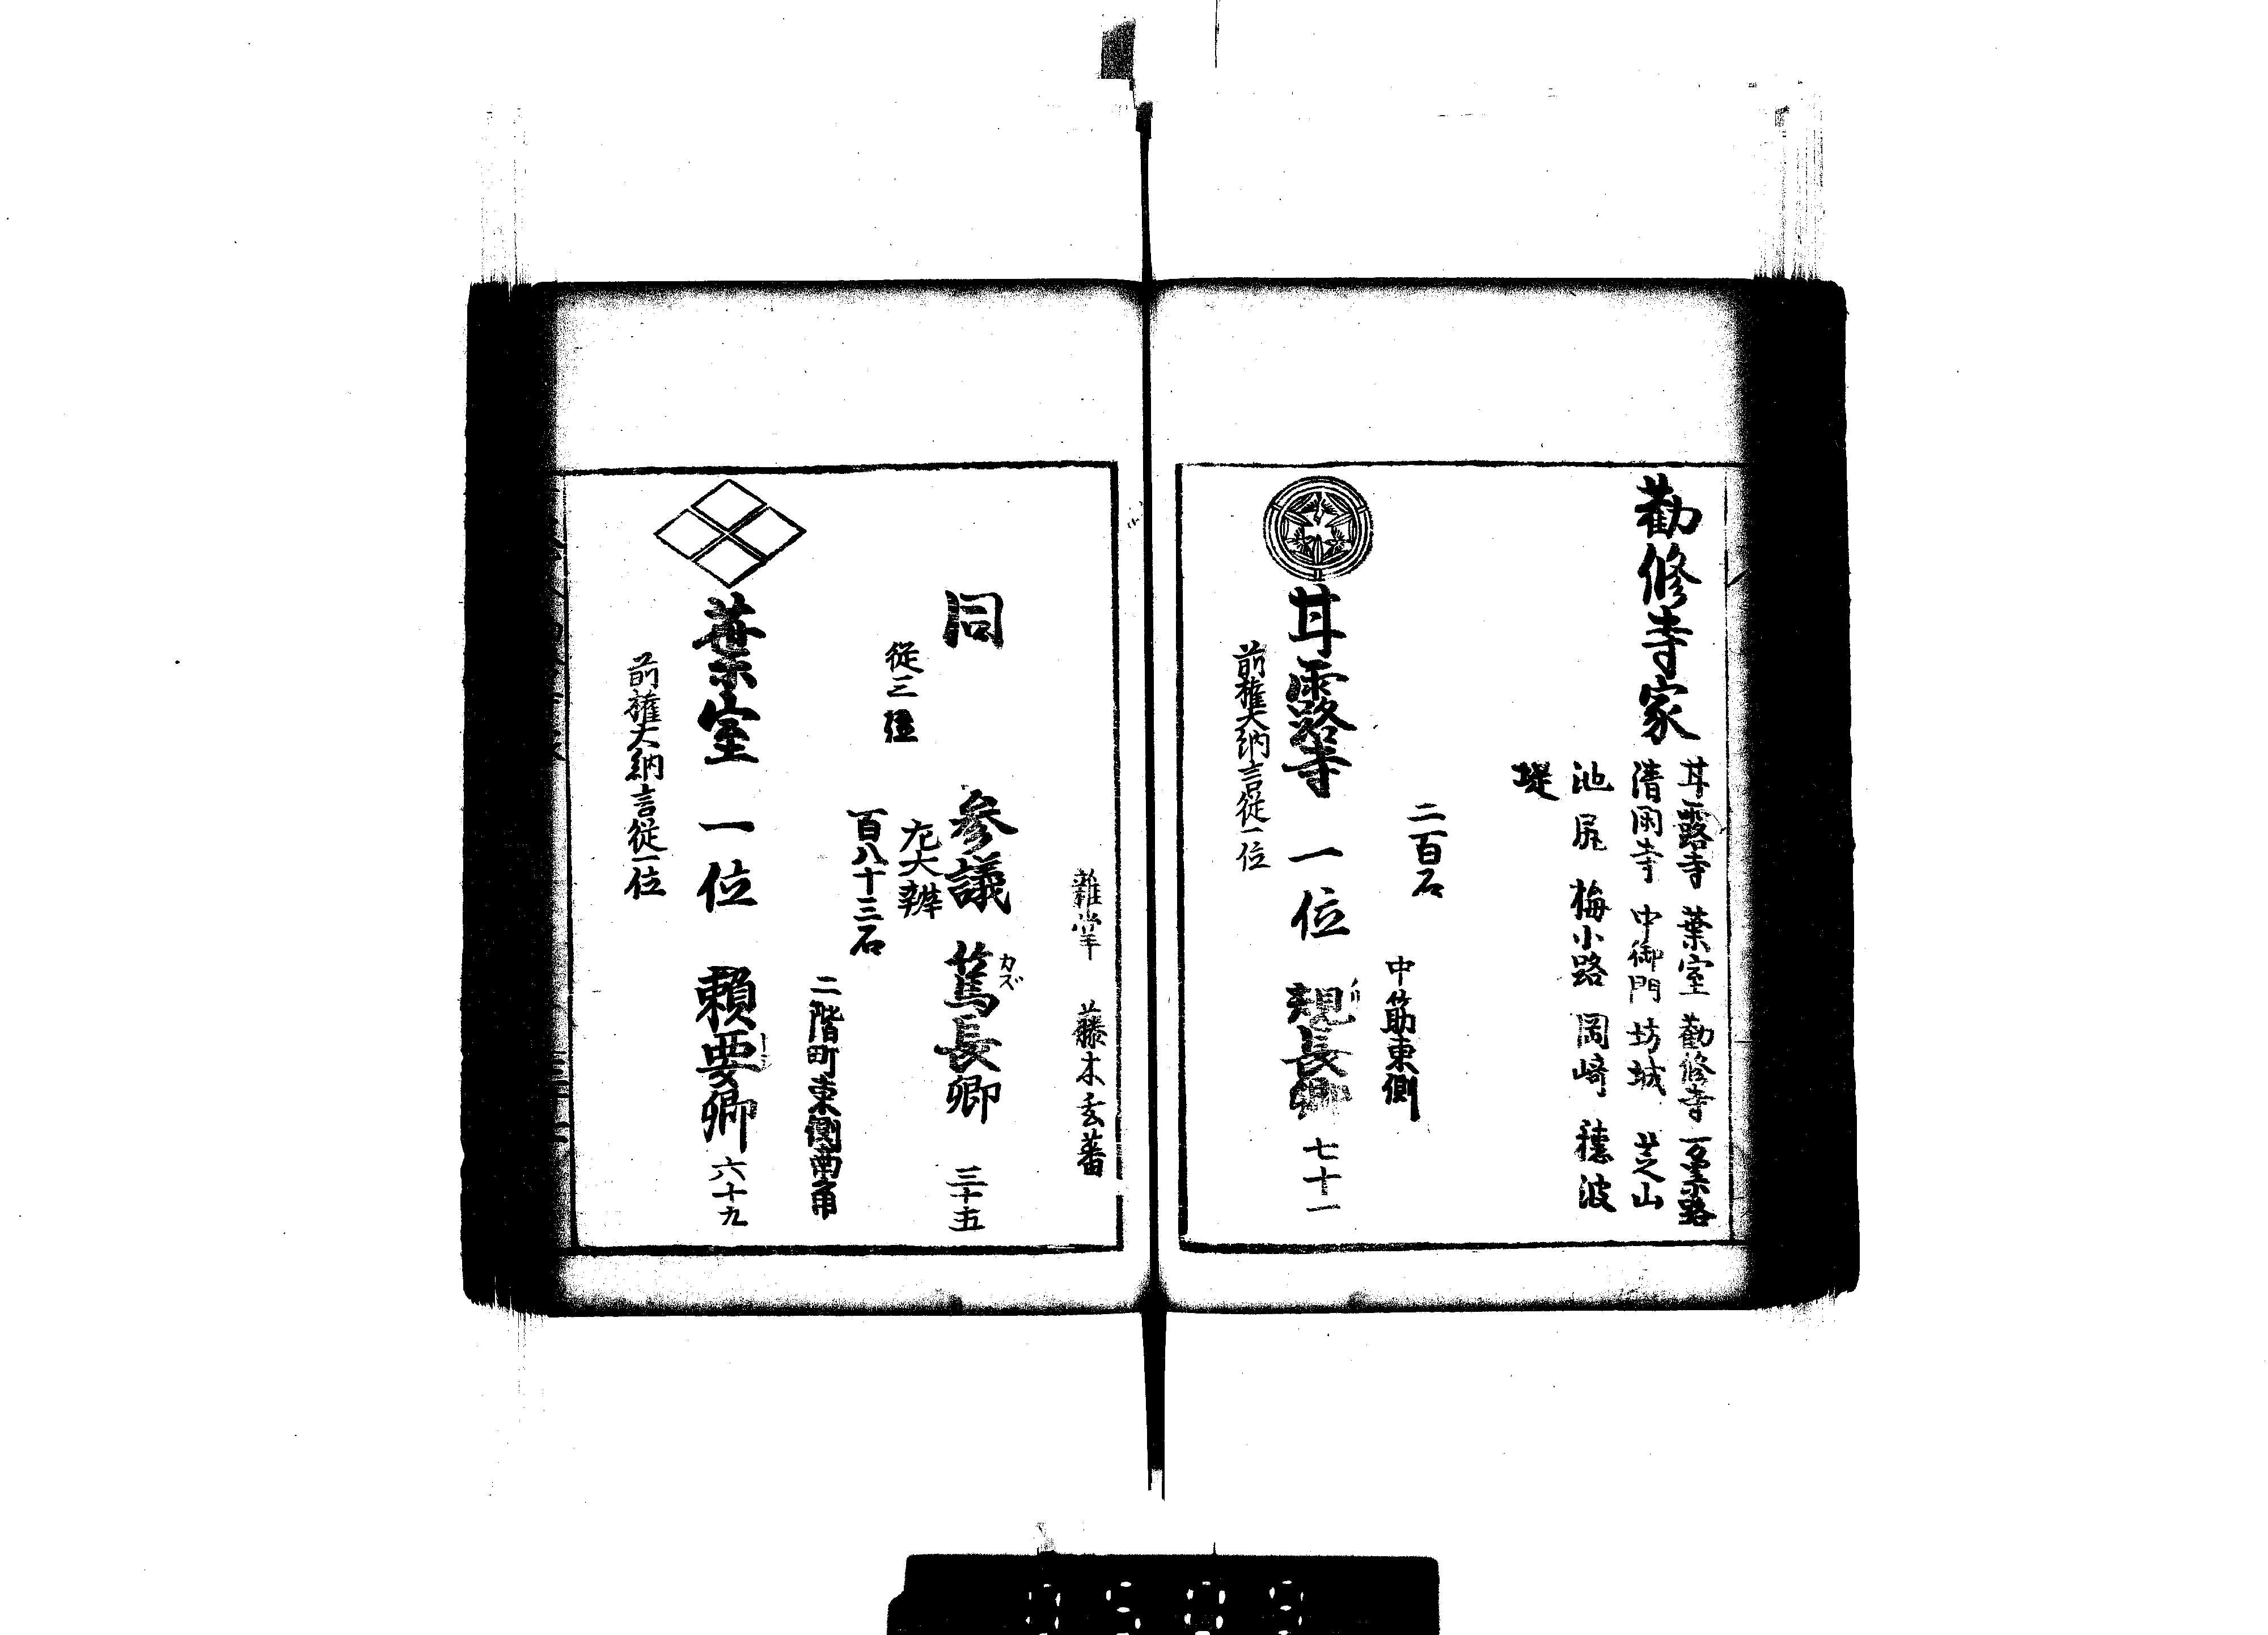 勸修寺家
甘露寺 葉室 勸修寺 万里小路
清閑寺 中御門 坊城 芝山
池尻 梅小路 岡崎 穗波
堤
二百石
中筋東側
甘露寺 一位 規長卿 七十一
前權大納言從一位
雜掌 藤木玄蕃
同 参議 篤長卿 三十五
カズ
左大辨
從三位
百八十三石
二階町東側南角
葉室 一位 賴要卿 六十九
前權大納言從一位